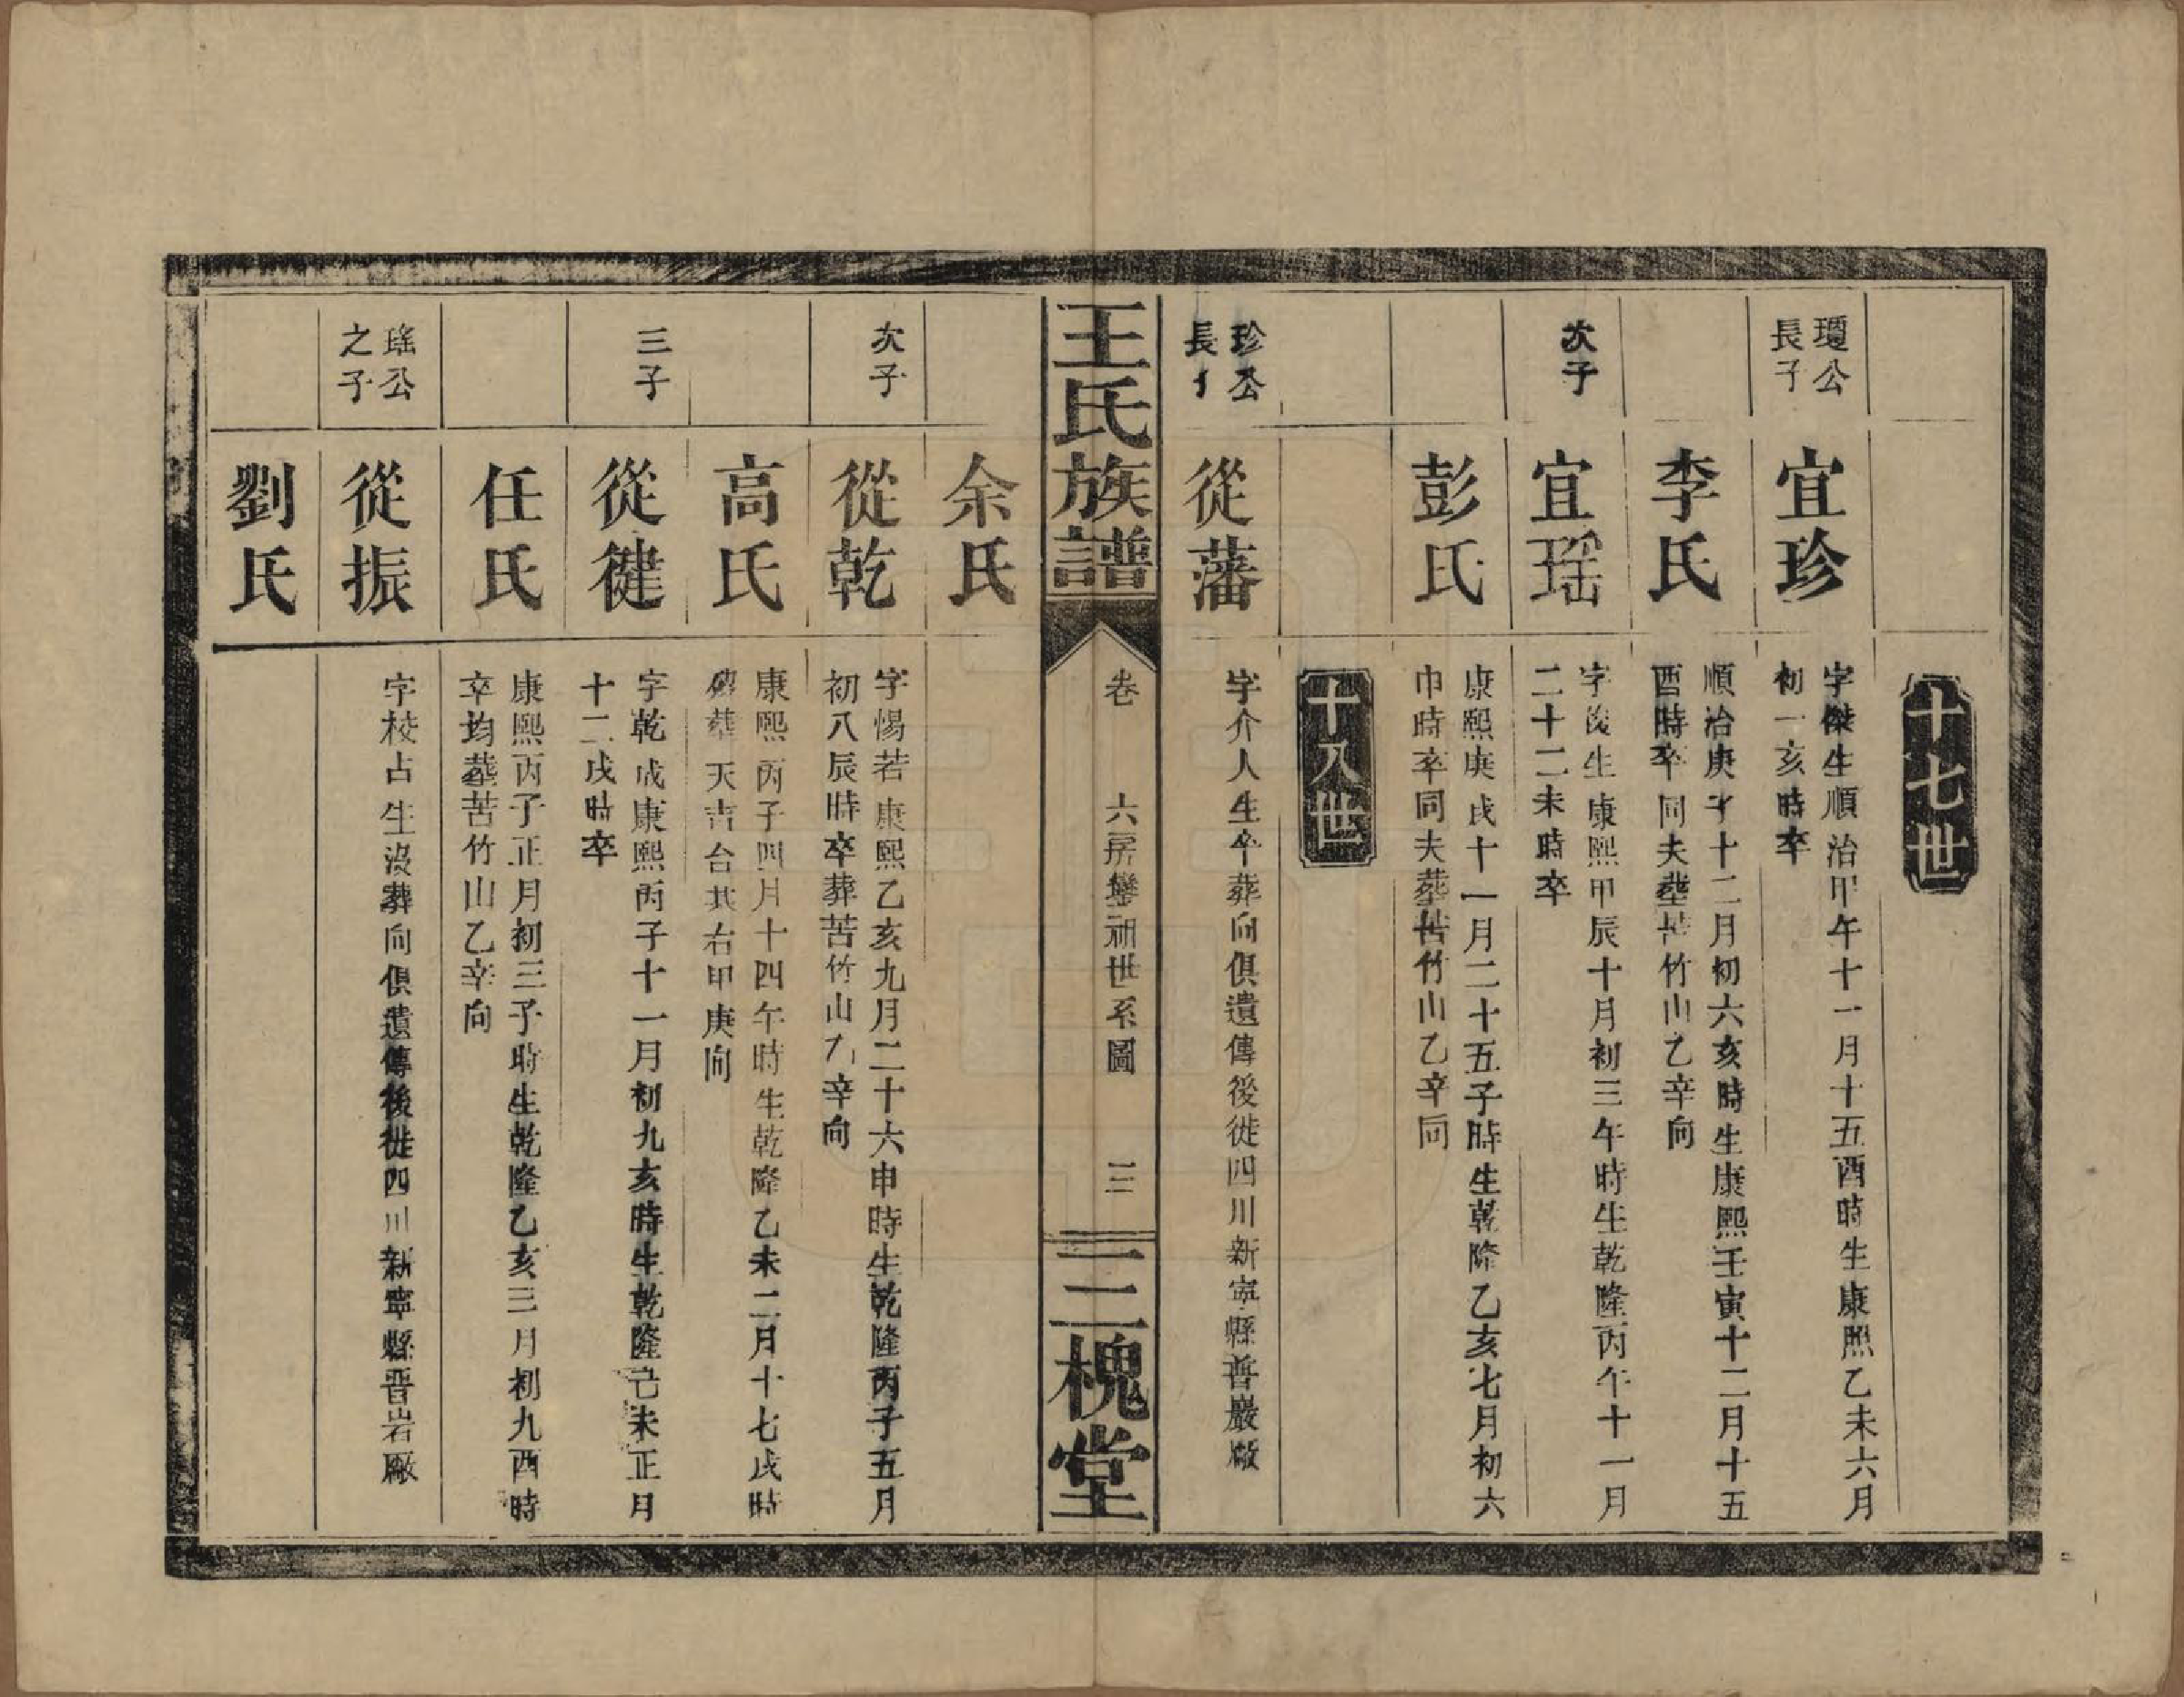 十七世
瓊公
長子
宜珍
字傑生順治甲午十一月十五酉時生康熙乙未六月
初一亥時卒
李氏
順治庚子十二月初六亥時生康熙壬寅十二月十五
酉時卒同夫塟苦竹山乙辛向
次子
宜瑶
字俊生康熙甲辰十月初三午時生乾隆丙午十一月
二十二未時卒
彭氏
康熙庚戌十一月二十五子時生乾隆乙亥七月初六
巾時卒同夫葬苦竹山乙辛向
十八世
珍公
長子
從藩
字介人生卒葬向俱遺傳後徙四川新寧縣普巖廠
王氏族譜
卷 六房鑾祖世系圖 三
三槐堂
余氏
次子
從乾
字惕若康熙乙亥九月二十六申時生乾隆丙子五月
初八辰時卒葬苦竹山乙辛向
高氏
康熙丙子四月十四午時生乾隆乙未二月十七戌時
葬天吉台其右甲庚向
三子
從健
字乾成康熙丙子十一月初九亥時生乾隆己未正月
十二戌時卒
任氏
康熙丙子正月初三子時生乾隆乙亥三月初九酉時
卒均塟苦竹山乙辛向
瑤公
之子
從振
字校占生沒葬向俱遺傳後徙四川新寧縣晋岩廠
劉氏